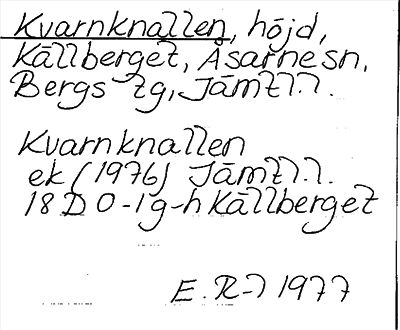 Kvarnknallen, höjd,
Källberget, Åsarne sn,
Bergs tg, Jämtl.l.
Kvarnknallen
ek (1976) Jämtl.l.
18 D 0-1 g-h Källberget
E. R-l 1977